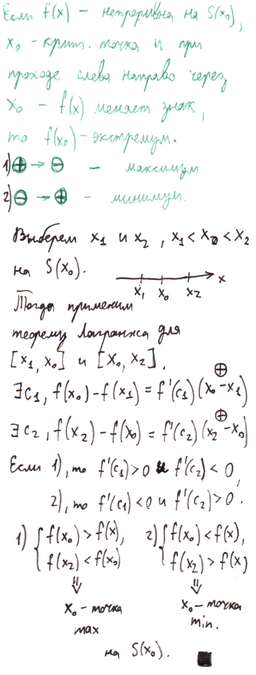 Если f(x) – непрерывна на S(x₀),
x₀ – крит. точка и при
проходе слева направо через
x₀ – f(x) меняет знак,
то f(x₀) – экстремум.
1) ⊕ → ⊖ – максимум
2) ⊖ → ⊕ – минимум.
Выберем x₁ и x₂, x₁ < x₀ < x₂
на S(x₀).
x₁ x₀ x₂ x
Тогда применим
теорему Лагранжа для
[x₁, x₀] и [x₀, x₂].
⊕
∃c₁, f(x₀) - f(x₁) = f'(c₁)(x₀ - x₁)
⊕
∃c₂, f(x₂) - f(x₀) = f'(c₂)(x₂ - x₀)
Если 1), то f'(c₁) > 0 и f'(c₂) < 0,
2), то f'(c₁) < 0 и f'(c₂) > 0.
1) { f(x₀) > f(x₁), 2) { f(x₀) < f(x₁),
f(x₂) < f(x₀) f(x₂) > f(x₀)
⇓ ⇓
x₀ – точка x₀ – точка
max min.
на S(x₀). ■